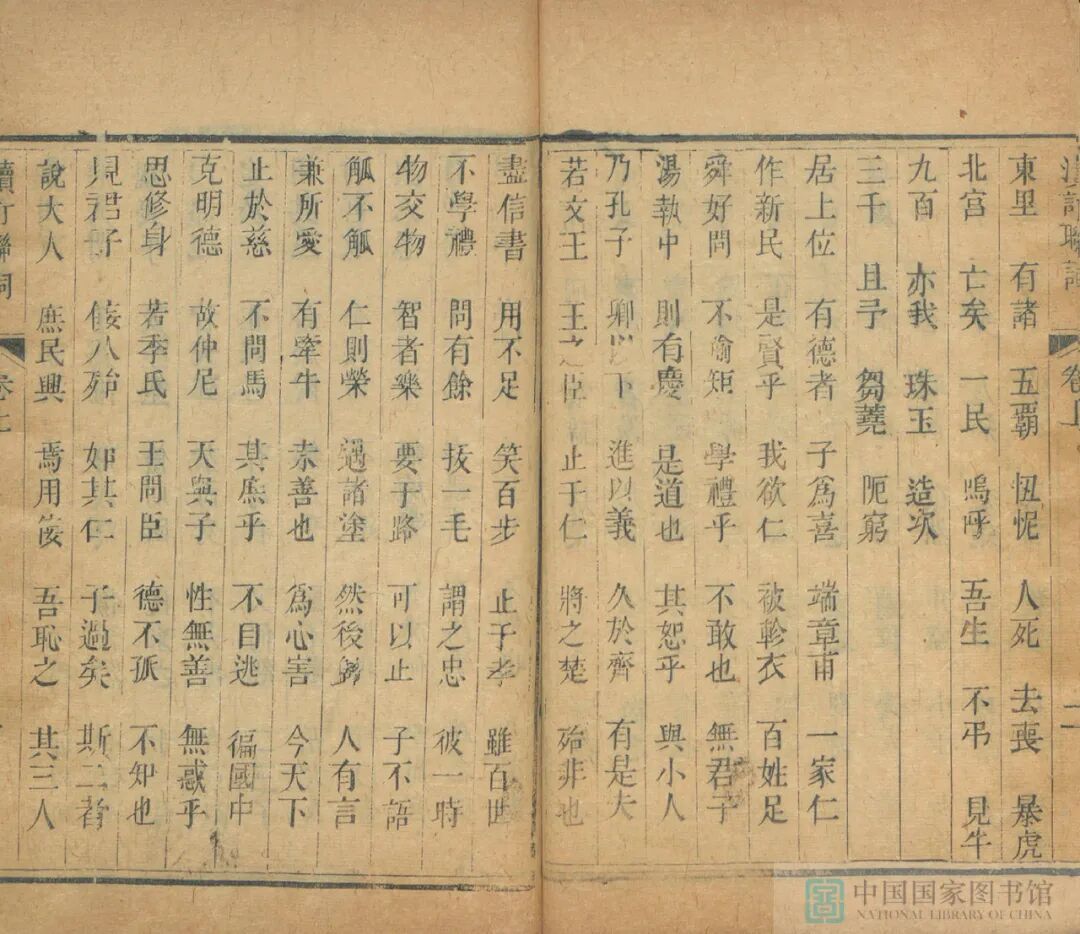 東里 有諸 五霸 忸怩 人死 去喪 暴虎
北宮 亡矣 一民 嗚呼 吾生 不弔 見牛
九百 亦我 珠玉 造次
三千 且予 芻蕘 阨窮
居上位 有德者 子為喜 端章甫 一家仁
作新民 是賢乎 我欲仁 被袗衣 百姓足
舜好問 不喻矩 學禮乎 不敢也 無君子
湯執中 則有慶 是道也 其恕乎 與小人
乃孔子 卿以下 進以義 久於齊 有是夫
若文王 王之臣 止于仁 將之楚 殆非也
盡信書 用不足 笑百步 止于孝 雖百世
不學禮 問有餘 拔一毛 謂之忠 彼一時
物交物 智者樂 要于路 可以止 子不語
觚不觚 仁則榮 遇諸塗 然後歸 人有言
兼所愛 有牽牛 未善也 為心害 今天下
止於慈 不問馬 其庶乎 不目逃 徧國中
克明德 故仲尼 天與子 性無善 無惑乎
思修身 若季氏 王問臣 德不孤 不知也
見君子 佞人殆 如其仁 子過矣 斯二者
說大人 庶民興 焉用佞 吾恥之 其三人
卷上
中国国家图书馆
NATIONAL LIBRARY OF CHINA